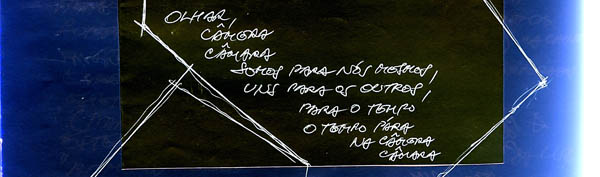 OLHAR,
CÂMERA
CÂMARA
SOMOS PARA NÓS MESMOS,
UNS PARA OS OUTROS,
PARA O TEMPO
O TEMPO PÁRA
NA CÂMERA
CÂMARA